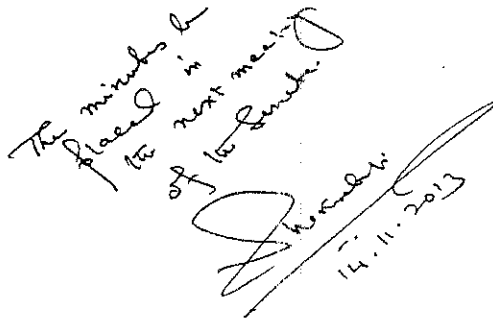 The minutes be
placed in
the next meeting
of the Senate.
14.11.2013